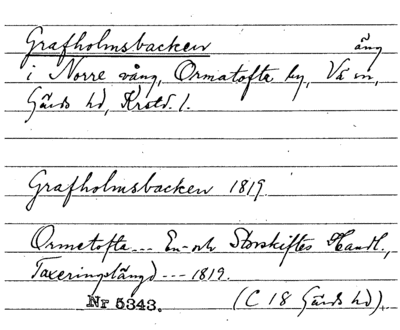 Grafholmsbacken äng
i Norre vång, Ormatofta by, Vä sn,
Gärds hd, Kristd. l.
Grafholmsbacken 1819.
Ormetofta --- En- och Storskiftes Handl.,
Taxeringslängd --- 1819.
Nr 5343. (C 18 Gärds hd).